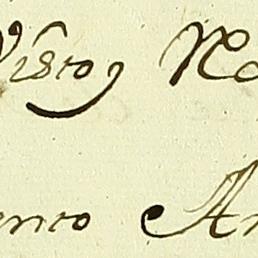 Visto, No
ento An